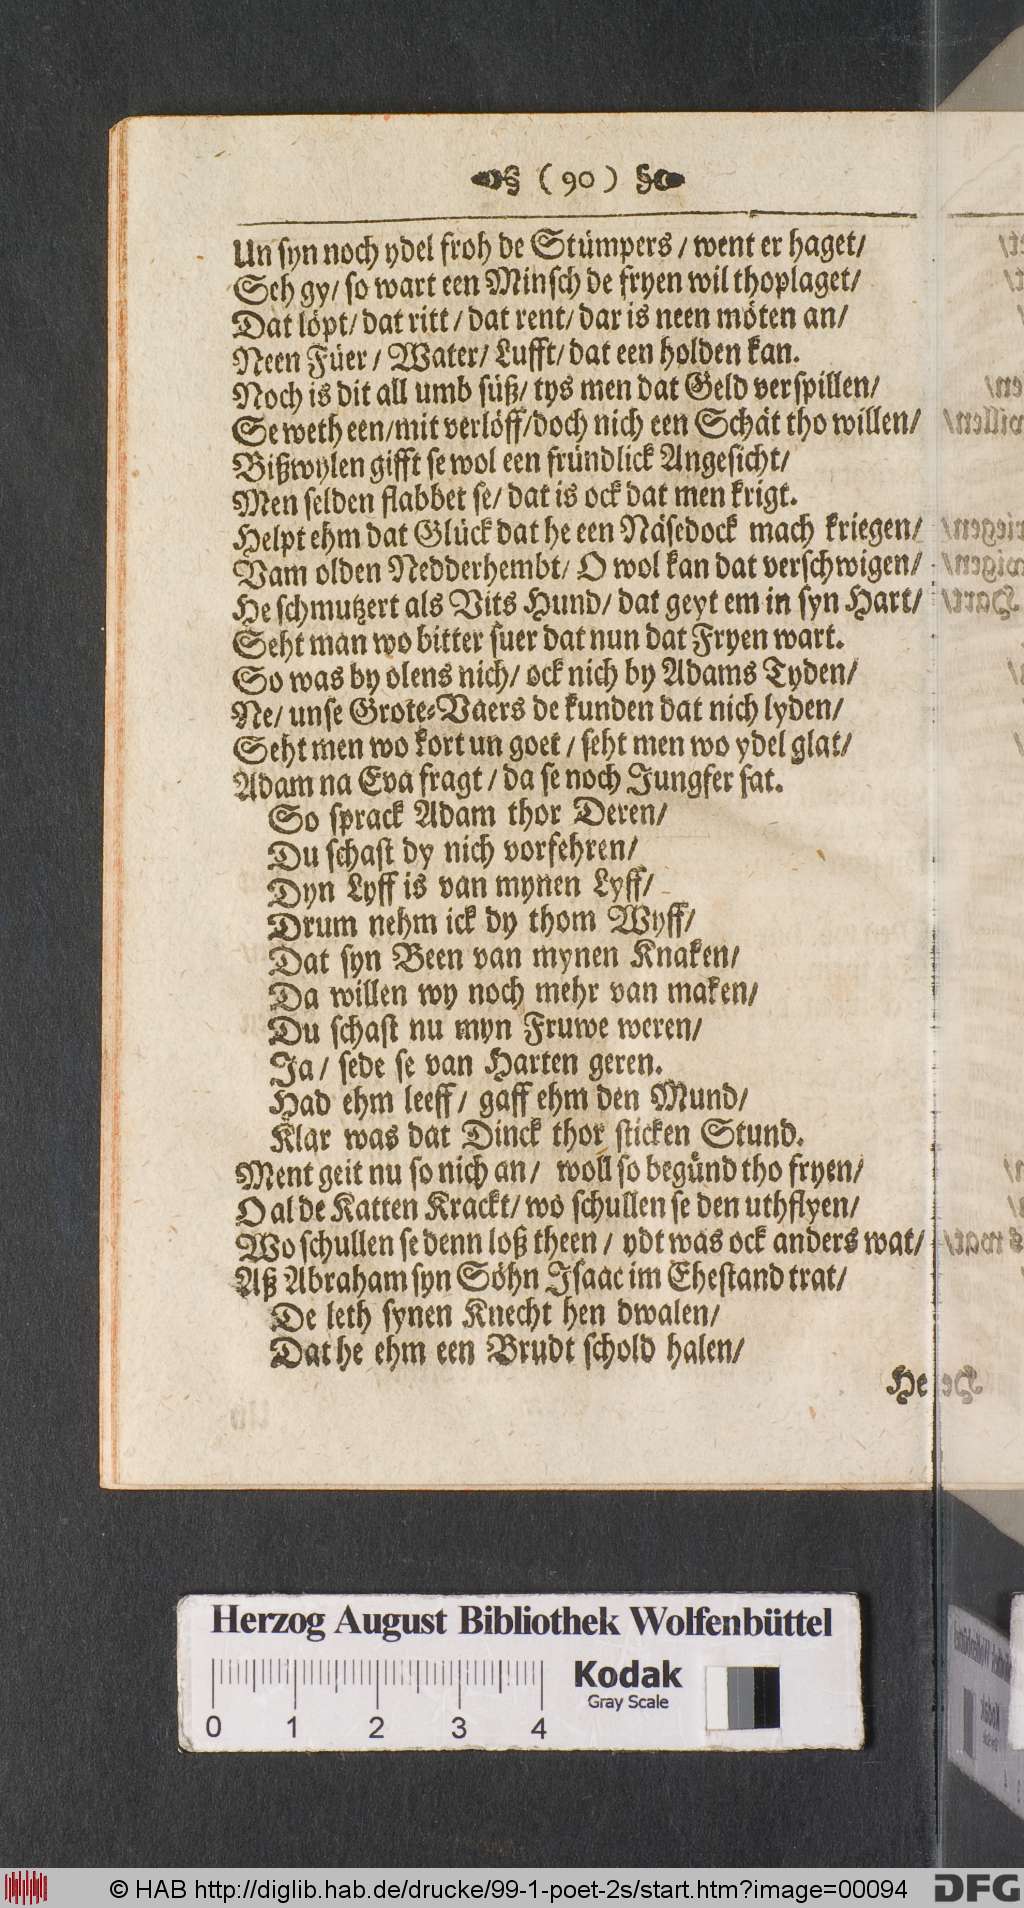 ( 90 )
Un syn noch ydel froh de Stümpers / went er haget /
Seh gy / so wart een Minsch de fryen wil thoplaget /
Dat löpt / dat ritt / dat rent / dar is neen möten an /
Neen Füer / Water / Lufft / dat een holden kan.
Noch is dit all umb süß / tys men dat Geld verspillen /
Se weth een / mit verlöff / doch nich een Schät tho willen /
Bißwylen gifft se wol een fründlick Angesicht /
Men selden flabbet se / dat is ock dat men krigt.
Helpt ehm dat Glück dat he een Näsedock mach kriegen /
Vam olden Nedderhembt / O wol kan dat verschwigen /
He schmutzert als Vits Hund / dat geyt em in syn Hart /
Seht man wo bitter suer dat nun dat Fryen wart.
So was by olens nich / ock nich by Adams Tyden /
Ne / unse Grote-Vaers de kunden dat nich lyden /
Seht men wo kort un goet / seht men wo ydel glat /
Adam na Eva fragt / da se noch Jungfer sat.
So sprack Adam thor Deren /
Du schast dy nich vorfehren /
Dyn Lyff is van mynen Lyff /
Drum nehm ick dy thom Wyff /
Dat syn Been van mynen Knaken /
Da willen wy noch mehr van maken /
Du schast nu myn Fruwe weren /
Ja / sede se van Harten geren.
Had ehm leeff / gaff ehm den Mund /
Klar was dat Dinck thor sticken Stund.
Ment geit nu so nich an / woll so begünd tho fryen /
O al de Katten Krackt / wo schullen se den uthflyen /
Wo schullen se denn loß theen / ydt was ock anders wat /
Aß Abraham syn Söhn Isaac im Ehestand trat /
De leth synen Knecht hen dwalen /
Dat he ehm een Brudt schold halen /
He
Herzog August Bibliothek Wolfenbüttel
Kodak
Gray Scale
0 1 2 3 4
© HAB http://diglib.hab.de/drucke/99-1-poet-2s/start.htm?image=00094
DFG